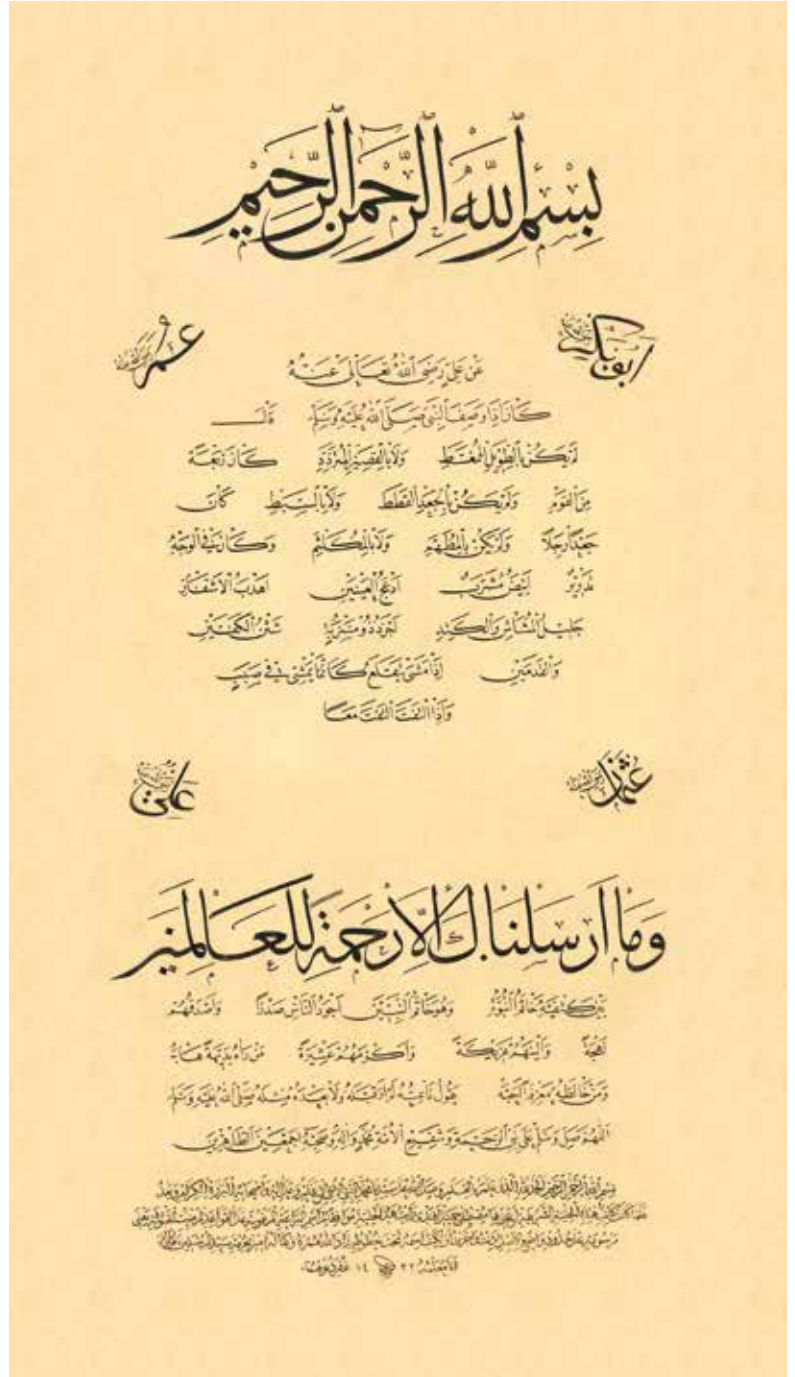 بسم الله الرحمن الرحيم
ابوبكر
عمر
عن علي رضي الله تعالى عنه
كان اذا وصف النبي صلى الله عليه وسلم قال
لم يكن بالطويل الممغط ولا بالقصير المتردد كان ربعة
من القوم ولم يكن بالجعد القطط ولا بالسبط كان
جعدا رجلا ولم يكن بالمطهم ولا بالمكلثم وكان في الوجه
تدوير ابيض مشرب ادعج العينين اهدب الاشفار
جليل المشاش والكتد اجرد ذو مسربة شثن الكفين
والقدمين اذا مشى يتقلع كانما يمشي في صبب
واذا التفت التفت معا
عثمان
علي
وما ارسلناك الا رحمة للعالمين
بين كتفيه خاتم النبوة وهو خاتم النبيين اجود الناس صدرا واصدقهم
لهجة والينهم عريكة واكرمهم عشيرة من راه بديهة هابه
ومن خالطه معرفة احبه يقول ناعته لم ار قبله ولا بعده مثله صلى الله عليه وسلم
اللهم صل وسلم على نبي الرحمة وشفيع الامة محمد واله وصحبه اجمعين الطاهرين
بسم الله الرحمن الرحيم الحمد لله